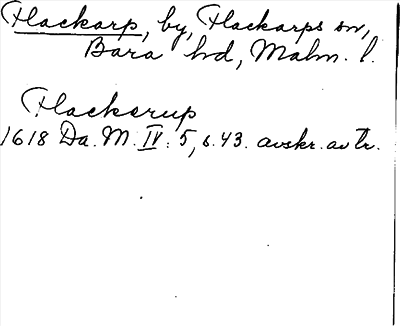 Flackarp, by, Flackarps sn,
Bara hd, Malm. l.
Flackerup
1618 Da. M. IV: 5, s. 43. avskr. av tr.